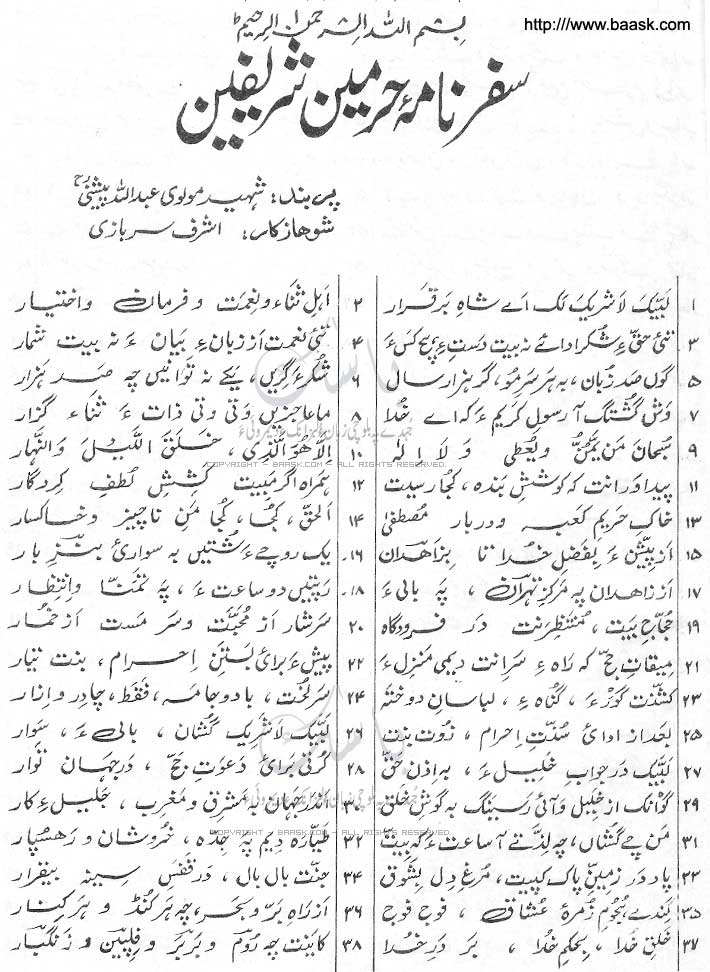 http://www.baask.com
بِسْمِ اللہِ الرَّحمٰنِ الرَّحِیْمِ
سفرنامۂ حرمین شریفین
پربند: شہید مولوی عبداللہ پیشنیؒ
شوھازکار: اشرف سربازی
۱ لَبَّیْکَ لَا شریک لک اے شاہِ برقرار ۲ اَہلِ ثناء و نعمت و فرمان و اختیار
۳ تئی حقِّ ءِ شُکر ادائے نہ بیت دستِ ہیچ کس ءَ ۴ تئی نعمت اَز زبان ءِ بیان ءَ نہ بیت شمار
۵ گوں صد زبان، بہ ہر سرِمُو، گر ہزار سال ۶ شُکر ءَ گریں، یکے نہ توانیں چہ صد ہزار
۷ وش گُشتگ آ رسولِ کریم ءَ کہ اے خُدا ۸ ما عاجزیں وتی وتی ذات ءَ ثناء گزار
۹ سُبحان مَن یَمُنُّ ویُعطی وَلَا اِلٰہ ۱۰ اِلَّا ھُوَ الَّذِی، خَلَقَ اللَّیْلَ وَ النَّہار
۱۱ پیدا ورانت کہ کوششِ بندہ، کُجا رسیت ۱۲ ہمراہ اگر مبیت کششِ لُطفِ کردگار
۱۳ خاکِ حریمِ کعبہ و دربارِ مُصطفیٰ ۱۴ اَلحق، کُجا، کُجا مَنِ ناچیز و خاکسار
۱۵ اَز پیشن ءَ بفضلِ خُدا تا بزاھدان ۱۶ یک روچے ءَ شُتیں بہ سواریٔ بنزِ بار
۱۷ اَز زاھدان بہ مرکزِ تہران، پہ بالی ءَ ۱۸ رپتیں دو ساعت ءَ، پہ تمنّا و اِنتظار
۱۹ حُجّاجِ بیت، مُنتظرنت در فرودگاہ ۲۰ سرشار اَز محبّت و سرمست اَز خُمار
۲۱ میقاتِ حج کہ راہ ءِ سرانت دیمی منزل ءَ ۲۲ پیش ءَ برائے بستنِ اِحرام، بنت تیار
۲۳ کشّنت گور ءَ، گُناہ ءِ، لباسانِ دوختہ ۲۴ سرلُخت، با دو جامہ، فقط، چادر و اِزار
۲۵ بعد از ادائ سُنّتِ اِحرام، زُوت بنت ۲۶ لبّیک لاشریک گُشان، بالی ءَ، سوار
۲۷ لبّیک در جوابِ خلیل ءَ، بہ اِذنِ حق ۲۸ برائ دعوتِ حج، در جہان
۲۹ گوانک از خلیل و آئ رسینگ بہ گوشِ خلق ۳۰ اندر جہان بہ مشرق و مغرب، جلیلِ ءِ کار
۳۱ مَن چے گُشاں، چہ لِذّتے آ ساعت ءَ کہ بیت ۳۲ طیّارہ دیم پہ جِدّہ، خروشان و رھسپار
۳۳ پاد در زمینِ پاک کپیت، مُرغِ دِل بشوق ۳۴ جنت بال بال، در قفسِ سینہ بیقرار
۳۵ گندے ہجومِ زُمرۂ عُشّاق، فوج فوج ۳۶ اَز راہِ برّ و بحر، چہ ہر کُنڈ و ہر کِنار
۳۷ خلقِ خُدا، بحکمِ خُدا، بر درِ خُدا ۳۸ کاینت چہ رُوم و بربر و فِلپین و زنگبار
COPYRIGHT - BAASK.COM - ALL RIGHTS RESERVED
COPYRIGHT - BAASK.COM - ALL RIGHTS RESERVED